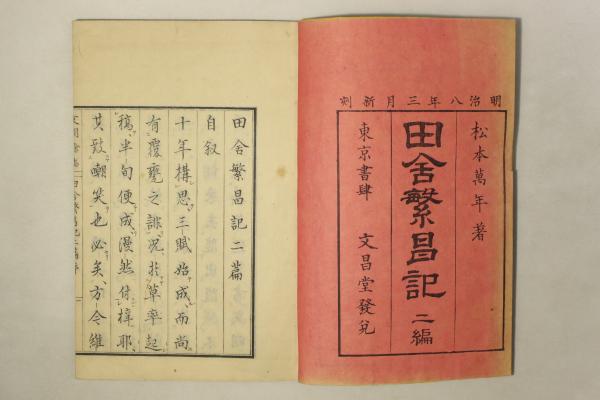 明治八年三月新刻
松本萬年著
田舎繁昌記 二編
東京書肆 文昌堂發兌
田舎繁昌記二篇
自叙
十年構思三賦始成而尚
有覆甕之誹況於草率起
稿半旬便成漫然付梓耶
其致嘲笑也必矣方今維